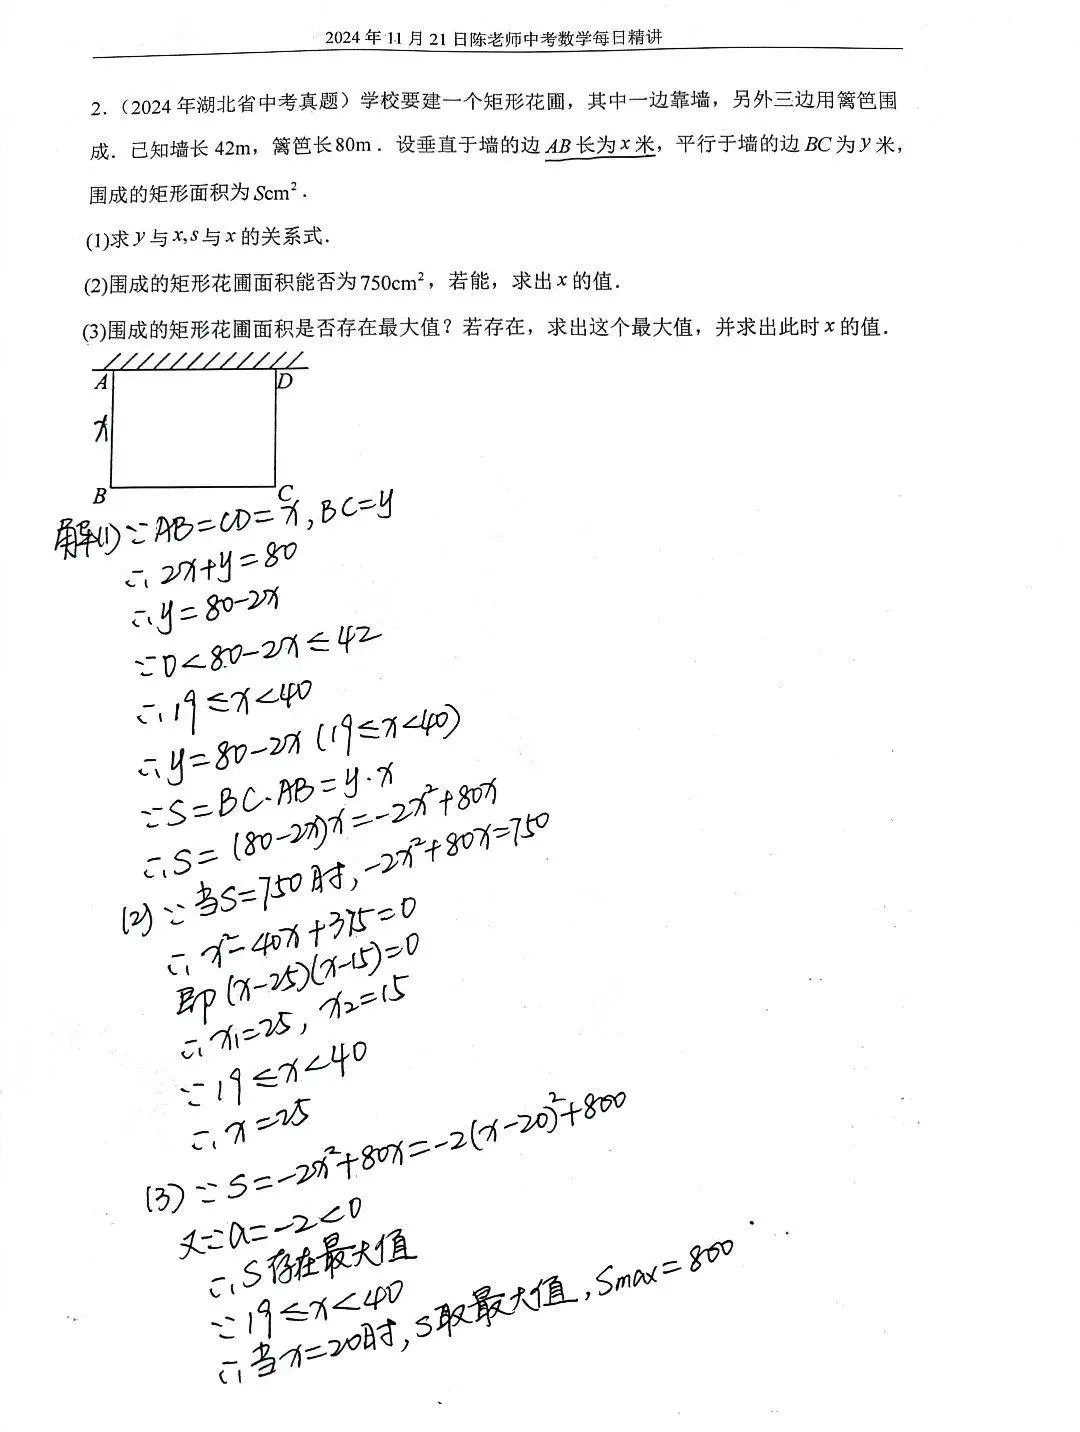 2024年11月21日陈老师中考数学每日精讲
2.（2024年湖北省中考真题）学校要建一个矩形花圃，其中一边靠墙，另外三边用篱笆围
成．已知墙长42m，篱笆长80m．设垂直于墙的边AB长为x米，平行于墙的边BC为y米，
围成的矩形面积为Scm²．
(1)求y与x,s与x的关系式．
(2)围成的矩形花圃面积能否为750cm²，若能，求出x的值．
(3)围成的矩形花圃面积是否存在最大值？若存在，求出这个最大值，并求出此时x的值．
A D
x
B C
解(1)∵AB=CD=x,BC=y
∴2x+y=80
∴y=80-2x
∵0<80-2x≤42
∴19≤x<40
∴y=80-2x(19≤x<40)
∵S=BC·AB=y·x
∴S=(80-2x)x=-2x²+80x
(2)∵当S=750时,-2x²+80x=750
∴x²-40x+375=0
即(x-25)(x-15)=0
∴x₁=25,x₂=15
∵19≤x<40
∴x=25
(3)∵S=-2x²+80x=-2(x-20)²+800
又∵a=-2<0
∴S存在最大值
∵19≤x<40
∴当x=20时,S取最大值,Smax=800